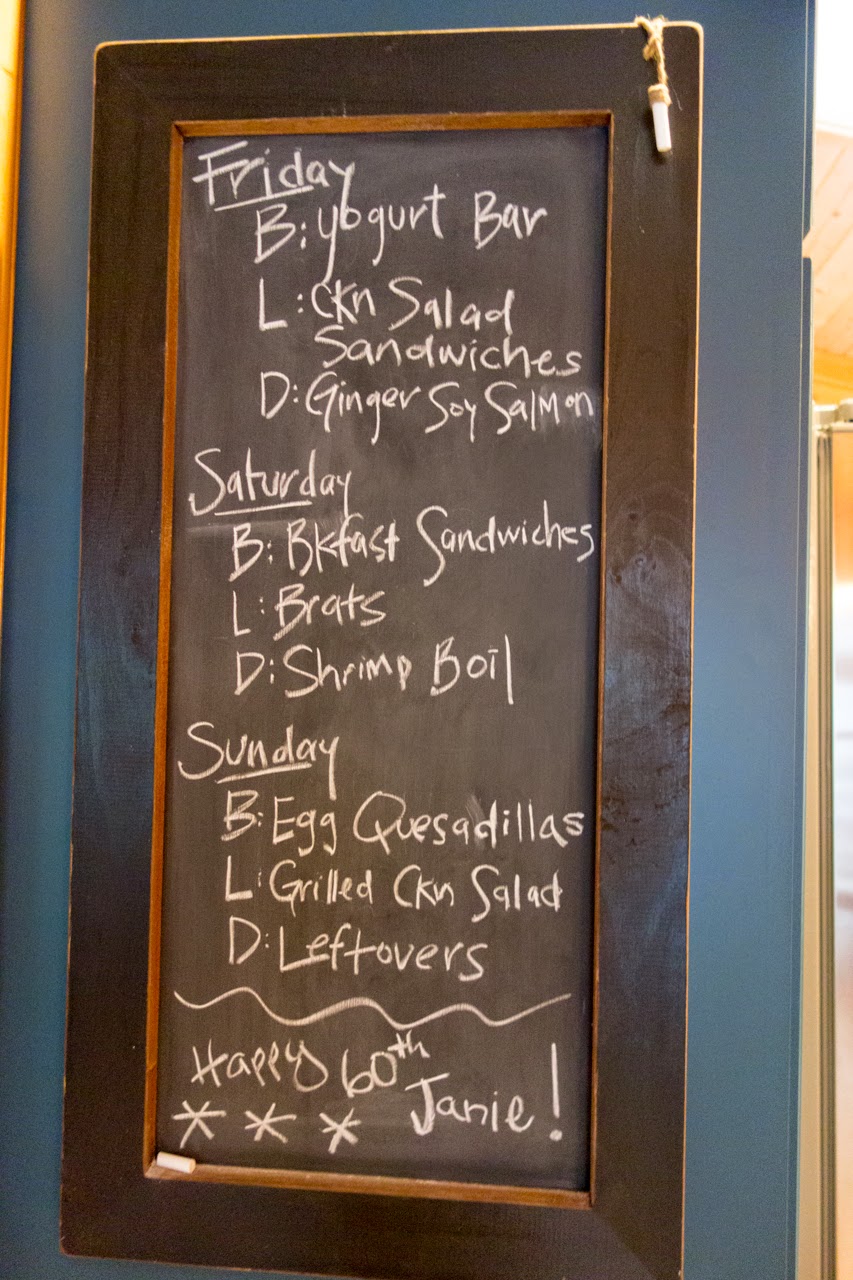 Friday
B: Yogurt Bar
L: Ckn Salad
Sandwiches
D: Ginger Soy Salmon
Saturday
B: Bkfast Sandwiches
L: Brats
D: Shrimp Boil
Sunday
B: Egg Quesadillas
L: Grilled Ckn Salad
D: Leftovers
Happy 60th
*** Janie!